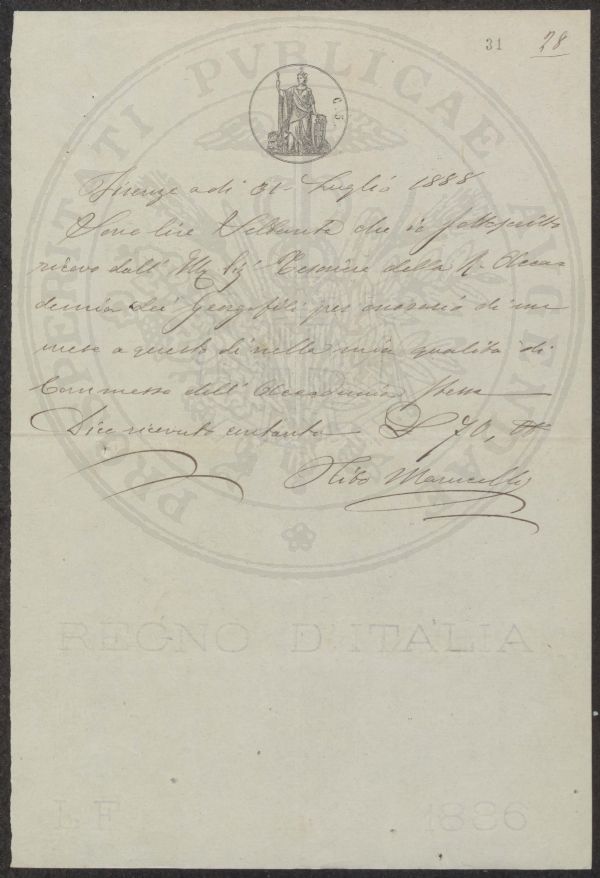 31 28
PROSPERITATI PVBLICAE AVGENDAE
C. 5.
Firenze a dì 31 Luglio 1888
Sono lire Settanta che io sottoscritto
ricevo dall' Ill Sig Cassiere della R. Acca-
demia dei Georgofili per onorario di un
mese a questo dì nella mia qualità di
Commesso dell' Accademia stessa
Dico ricevuto contanti L 70,
Marucelli
REGNO D'ITALIA
L F 1886